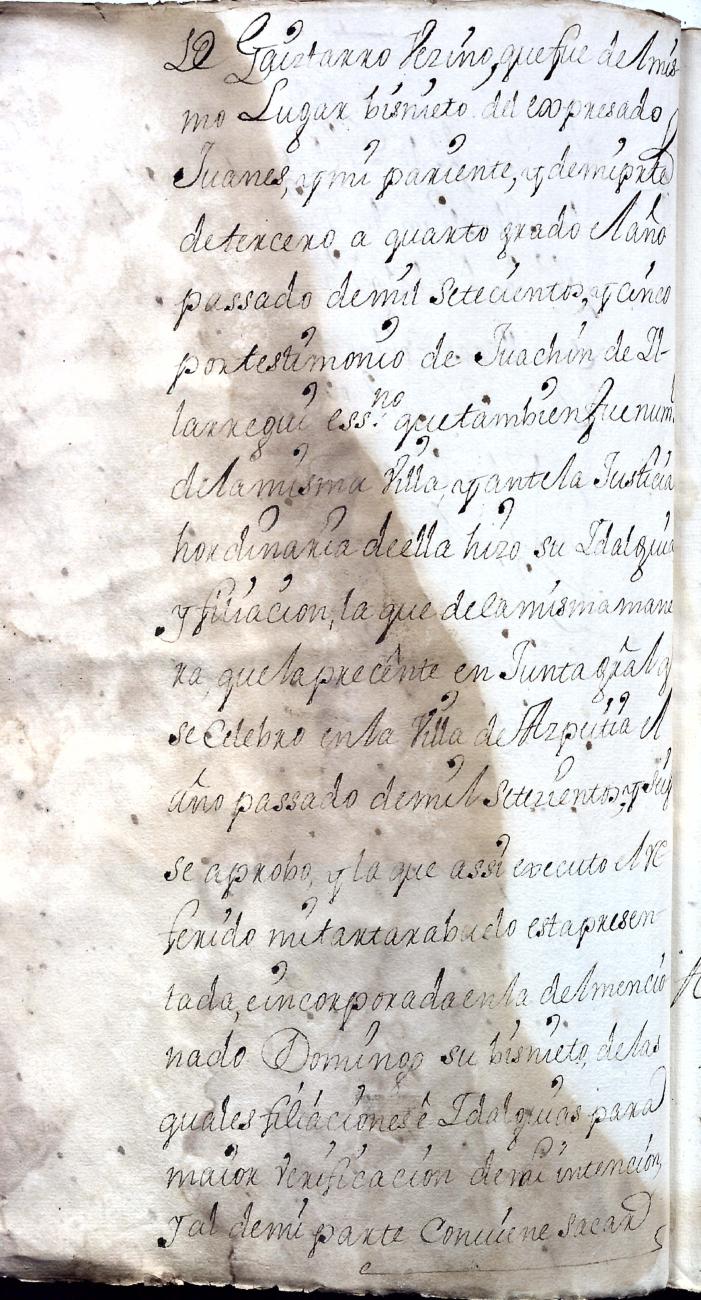 Gaiztarro Vezino, que fue del mis
mo Lugar bisnieto del expresado
Juanes, y mi pariente, y de mi prte
de tercero a quarto grado el año
passado de mil Setecientos, y cinco
por testimonio de Juachin de Il-
larregui essno que tambien fue num
de la misma Villa, y ante la Justicia
hordinaria de ella hizo su Idalguia
y filiacion, la que de la misma mane
ra, que la precênte en Junta grãl q
se Celebro en la Villa de Azpeitia el
año passado de mil Setezientos, y seis
se aprobo, y la que assi executo el re
ferido mi tartarabuelo esta presen-
tada, e incorporada en la del mencio
nado Domingo su bisnieto, de las
quales filiaciones ê Idalguias para
maior Verificacion de mi intencion,
y al de mi parte Conviene sacar